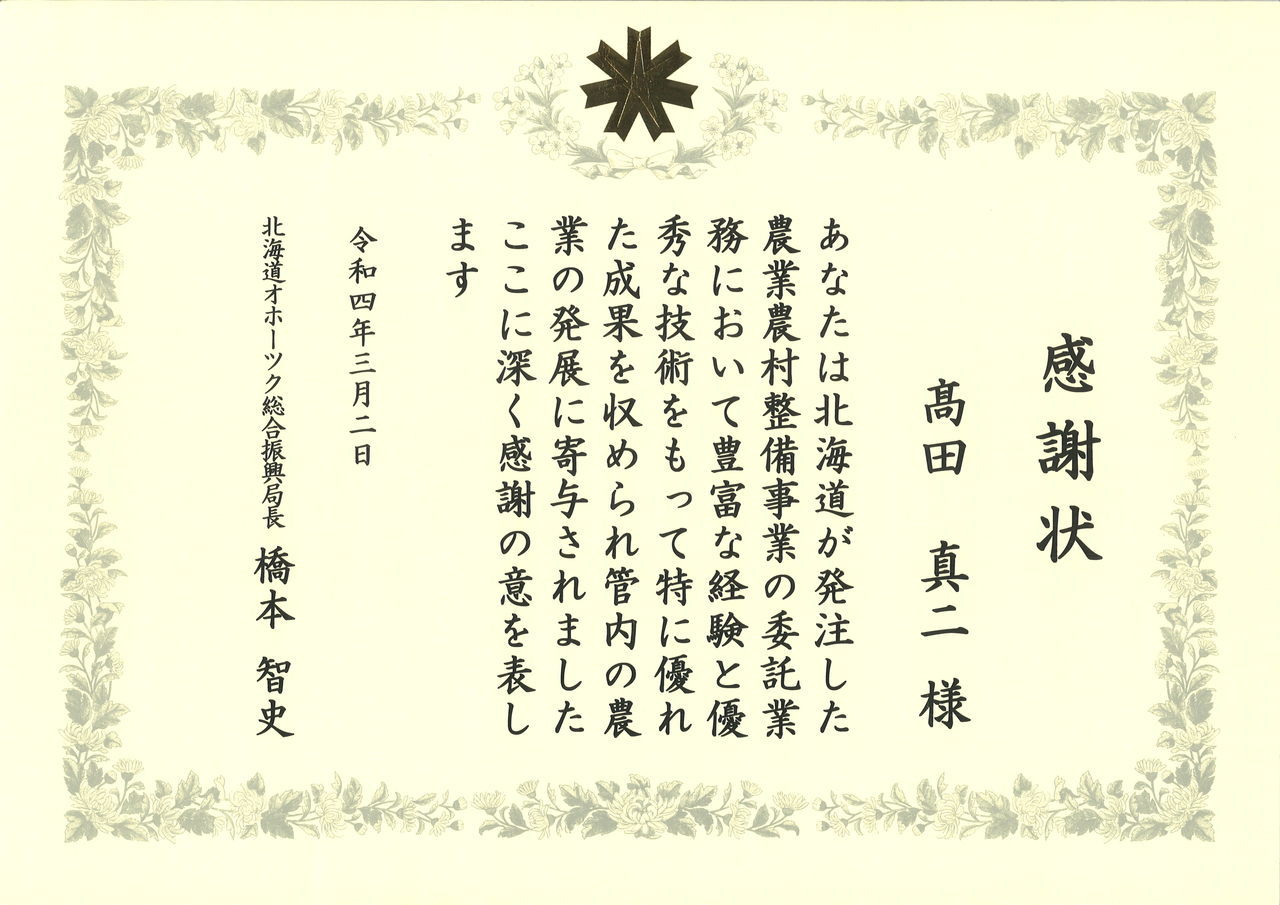 感謝状
髙田 真二 様
あなたは北海道が発注した
農業農村整備事業の委託業
務において豊富な経験と優
秀な技術をもって特に優れ
た成果を収められ管内の農
業の発展に寄与されました
ここに深く感謝の意を表し
ます
令和四年三月二日
北海道オホーツク総合振興局長 橋本 智史